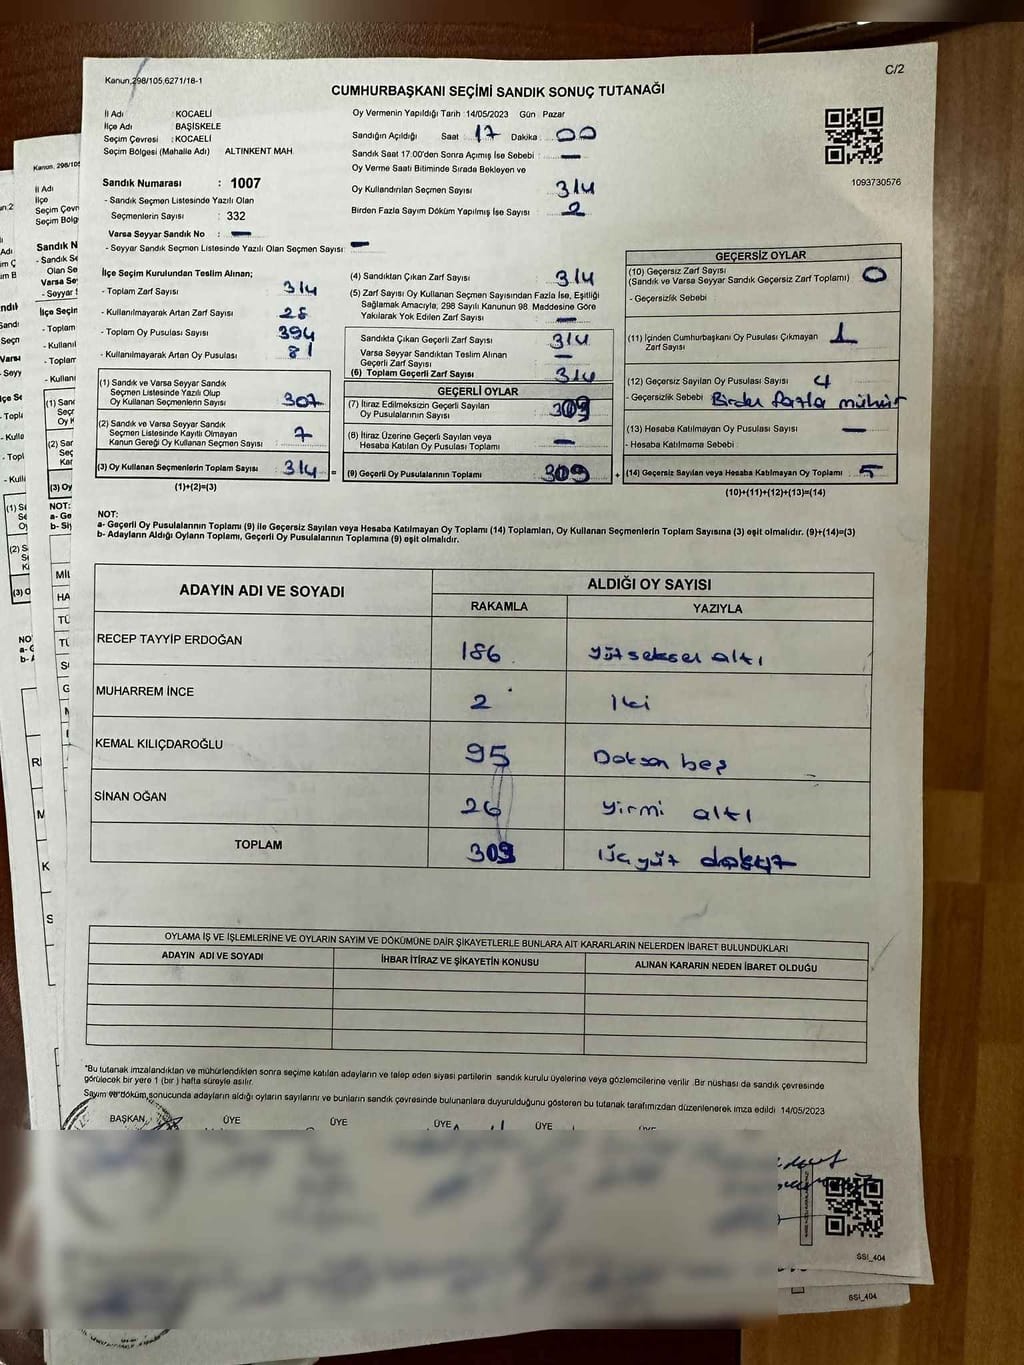 Kanun,298/105,6271/18-1
C/2
CUMHURBAŞKANI SEÇİMİ SANDIK SONUÇ TUTANAĞI
İl Adı : KOCAELİ
İlçe Adı BAŞİSKELE
Seçim Çevresi : KOCAELİ
Seçim Bölgesi (Mahalle Adı) ALTINKENT MAH.
Sandık Numarası : 1007
- Sandık Seçmen Listesinde Yazılı Olan
Seçmenlerin Sayısı : 332
Varsa Seyyar Sandık No : —
- Seyyar Sandık Seçmen Listesinde Yazılı Olan Seçmen Sayısı: —
Oy Vermenin Yapıldığı Tarih :14/05/2023 Gün : Pazar
Sandığın Açıldığı Saat : 17 Dakika : 00
Sandık Saat 17.00'den Sonra Açılmış İse Sebebi : —
Oy Verme Saati Bitiminde Sırada Bekleyen ve
Oy Kullandırılan Seçmen Sayısı 314
Birden Fazla Sayım Döküm Yapılmış İse Sayısı : 2
1093730576
İlçe Seçim Kurulundan Teslim Alınan;
- Toplam Zarf Sayısı : 314
- Kullanılmayarak Artan Zarf Sayısı : 28
- Toplam Oy Pusulası Sayısı : 394
- Kullanılmayarak Artan Oy Pusulası : 81
(1) Sandık ve Varsa Seyyar Sandık
Seçmen Listesinde Yazılı Olup
Oy Kullanan Seçmenlerin Sayısı : 307
(2) Sandık ve Varsa Seyyar Sandık
Seçmen Listesinde Kayıtlı Olmayan
Kanun Gereği Oy Kullanan Seçmen Sayısı : 7
(3) Oy Kullanan Seçmenlerin Toplam Sayısı : 314
(1)+(2)=(3)
(4) Sandıktan Çıkan Zarf Sayısı : 314
(5) Zarf Sayısı Oy Kullanan Seçmen Sayısından Fazla İse, Eşitliği
Sağlamak Amacıyla; 298 Sayılı Kanunun 98. Maddesine Göre
Yakılarak Yok Edilen Zarf Sayısı : —
Sandıkta Çıkan Geçerli Zarf Sayısı : 314
Varsa Seyyar Sandıktan Teslim Alınan
Geçerli Zarf Sayısı : —
(6) Toplam Geçerli Zarf Sayısı : 314
GEÇERLİ OYLAR
(7) İtiraz Edilmeksizin Geçerli Sayılan
Oy Pusulalarının Sayısı : 309
(8) İtiraz Üzerine Geçerli Sayılan veya
Hesaba Katılan Oy Pusulası Sayısı : —
(9) Geçerli Oy Pusulalarının Toplamı : 309
GEÇERSİZ OYLAR
(10) Geçersiz Zarf Sayısı
(Sandık ve Varsa Seyyar Sandık Geçersiz Zarf Toplamı) : 0
- Geçersizlik Sebebi :
(11) İçinden Cumhurbaşkanı Oy Pusulası Çıkmayan
Zarf Sayısı : 1
(12) Geçersiz Sayılan Oy Pusulası Sayısı : 4
- Geçersizlik Sebebi : Birden fazla mühür
(13) Hesaba Katılmayan Oy Pusulası Sayısı : —
- Hesaba Katılmama Sebebi :
(14) Geçersiz Sayılan veya Hesaba Katılmayan Oy Toplamı : 5
(10)+(11)+(12)+(13)=(14)
NOT:
a- Geçerli Oy Pusulalarının Toplamı (9) ile Geçersiz Sayılan veya Hesaba Katılmayan Oy Toplamı (14) Toplamları, Oy Kullanan Seçmenlerin Toplam Sayısına (3) eşit olmalıdır. (9)+(14)=(3)
b- Adayların Aldığı Oyların Toplamı, Geçerli Oy Pusulalarının Toplamına (9) eşit olmalıdır.
ADAYIN ADI VE SOYADI
ALDIĞI OY SAYISI
RAKAMLA YAZIYLA
RECEP TAYYİP ERDOĞAN 186 yüzseksen altı
MUHARREM İNCE 2 İki
KEMAL KILIÇDAROĞLU 95 Doksan beş
SİNAN OĞAN 26 yirmi altı
TOPLAM 309 Üç yüz dokuz
OYLAMA İŞ VE İŞLEMLERİNE VE OYLARIN SAYIM VE DÖKÜMÜNE DAİR ŞİKAYETLERLE BUNLARA AİT KARARLARIN NELERDEN İBARET BULUNDUKLARI
ADAYIN ADI VE SOYADI İHBAR İTİRAZ VE ŞİKAYETİN KONUSU ALINAN KARARIN NEDEN İBARET OLDUĞU
*Bu tutanak imzalandıktan ve mühürlendikten sonra seçime katılan adayların ve talep eden siyasi partilerin sandık kurulu üyelerine veya gözlemcilerine verilir .Bir nüshası da sandık çevresinde
görülecek bir yere 1 (bir ) hafta süreyle asılır.
Sayım ve döküm sonucunda adayların aldığı oyların sayılarını ve bunların sandık çevresinde bulunanlara duyurulduğunu gösteren bu tutanak tarafımızdan düzenlenerek imza edildi 14/05/2023
BAŞKAN ÜYE ÜYE ÜYE ÜYE
SSI_404
SSI_404